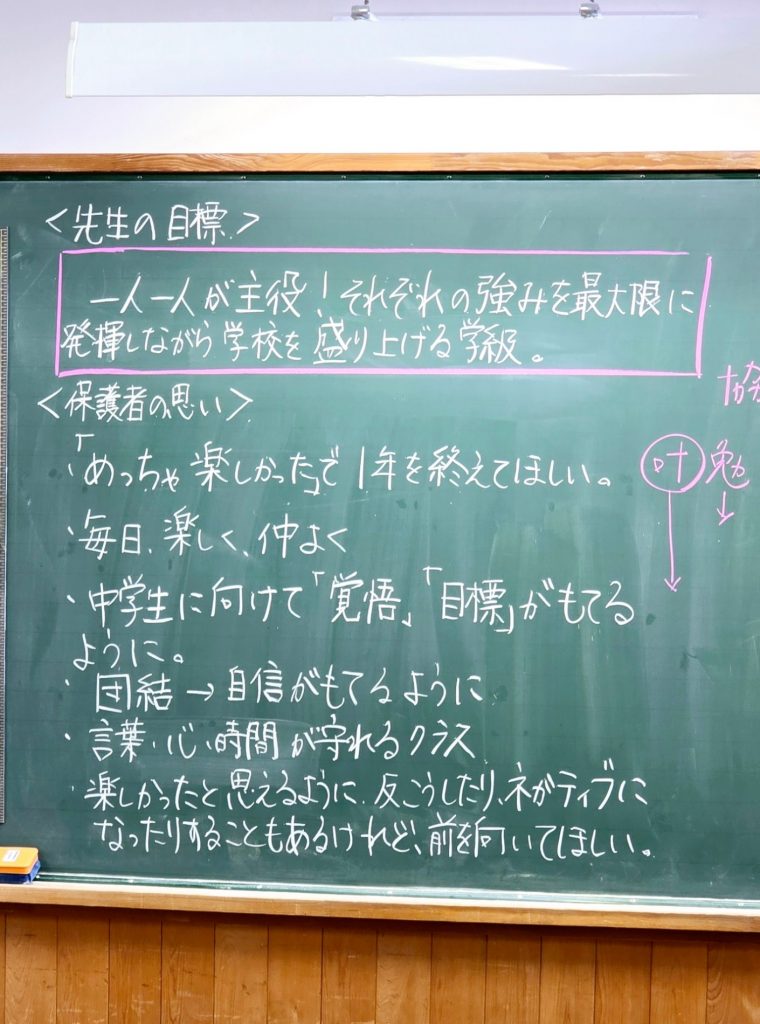 ＜先生の目標＞
一人一人が主役！それぞれの強みを最大限に
発揮しながら学校を盛り上げる学級。
＜保護者の思い＞
・「めっちゃ楽しかった」で1年を終えてほしい。
・毎日、楽しく、仲よく
・中学生に向けて「覚悟」、「目標」がもてる
ように。
・団結→自信がもてるように
・言葉・心・時間が守れるクラス
・楽しかったと思えるように、反こうしたり、ネガティブに
なったりすることもあるけれど、前を向いてほしい。
叶 勉
↓ ↓